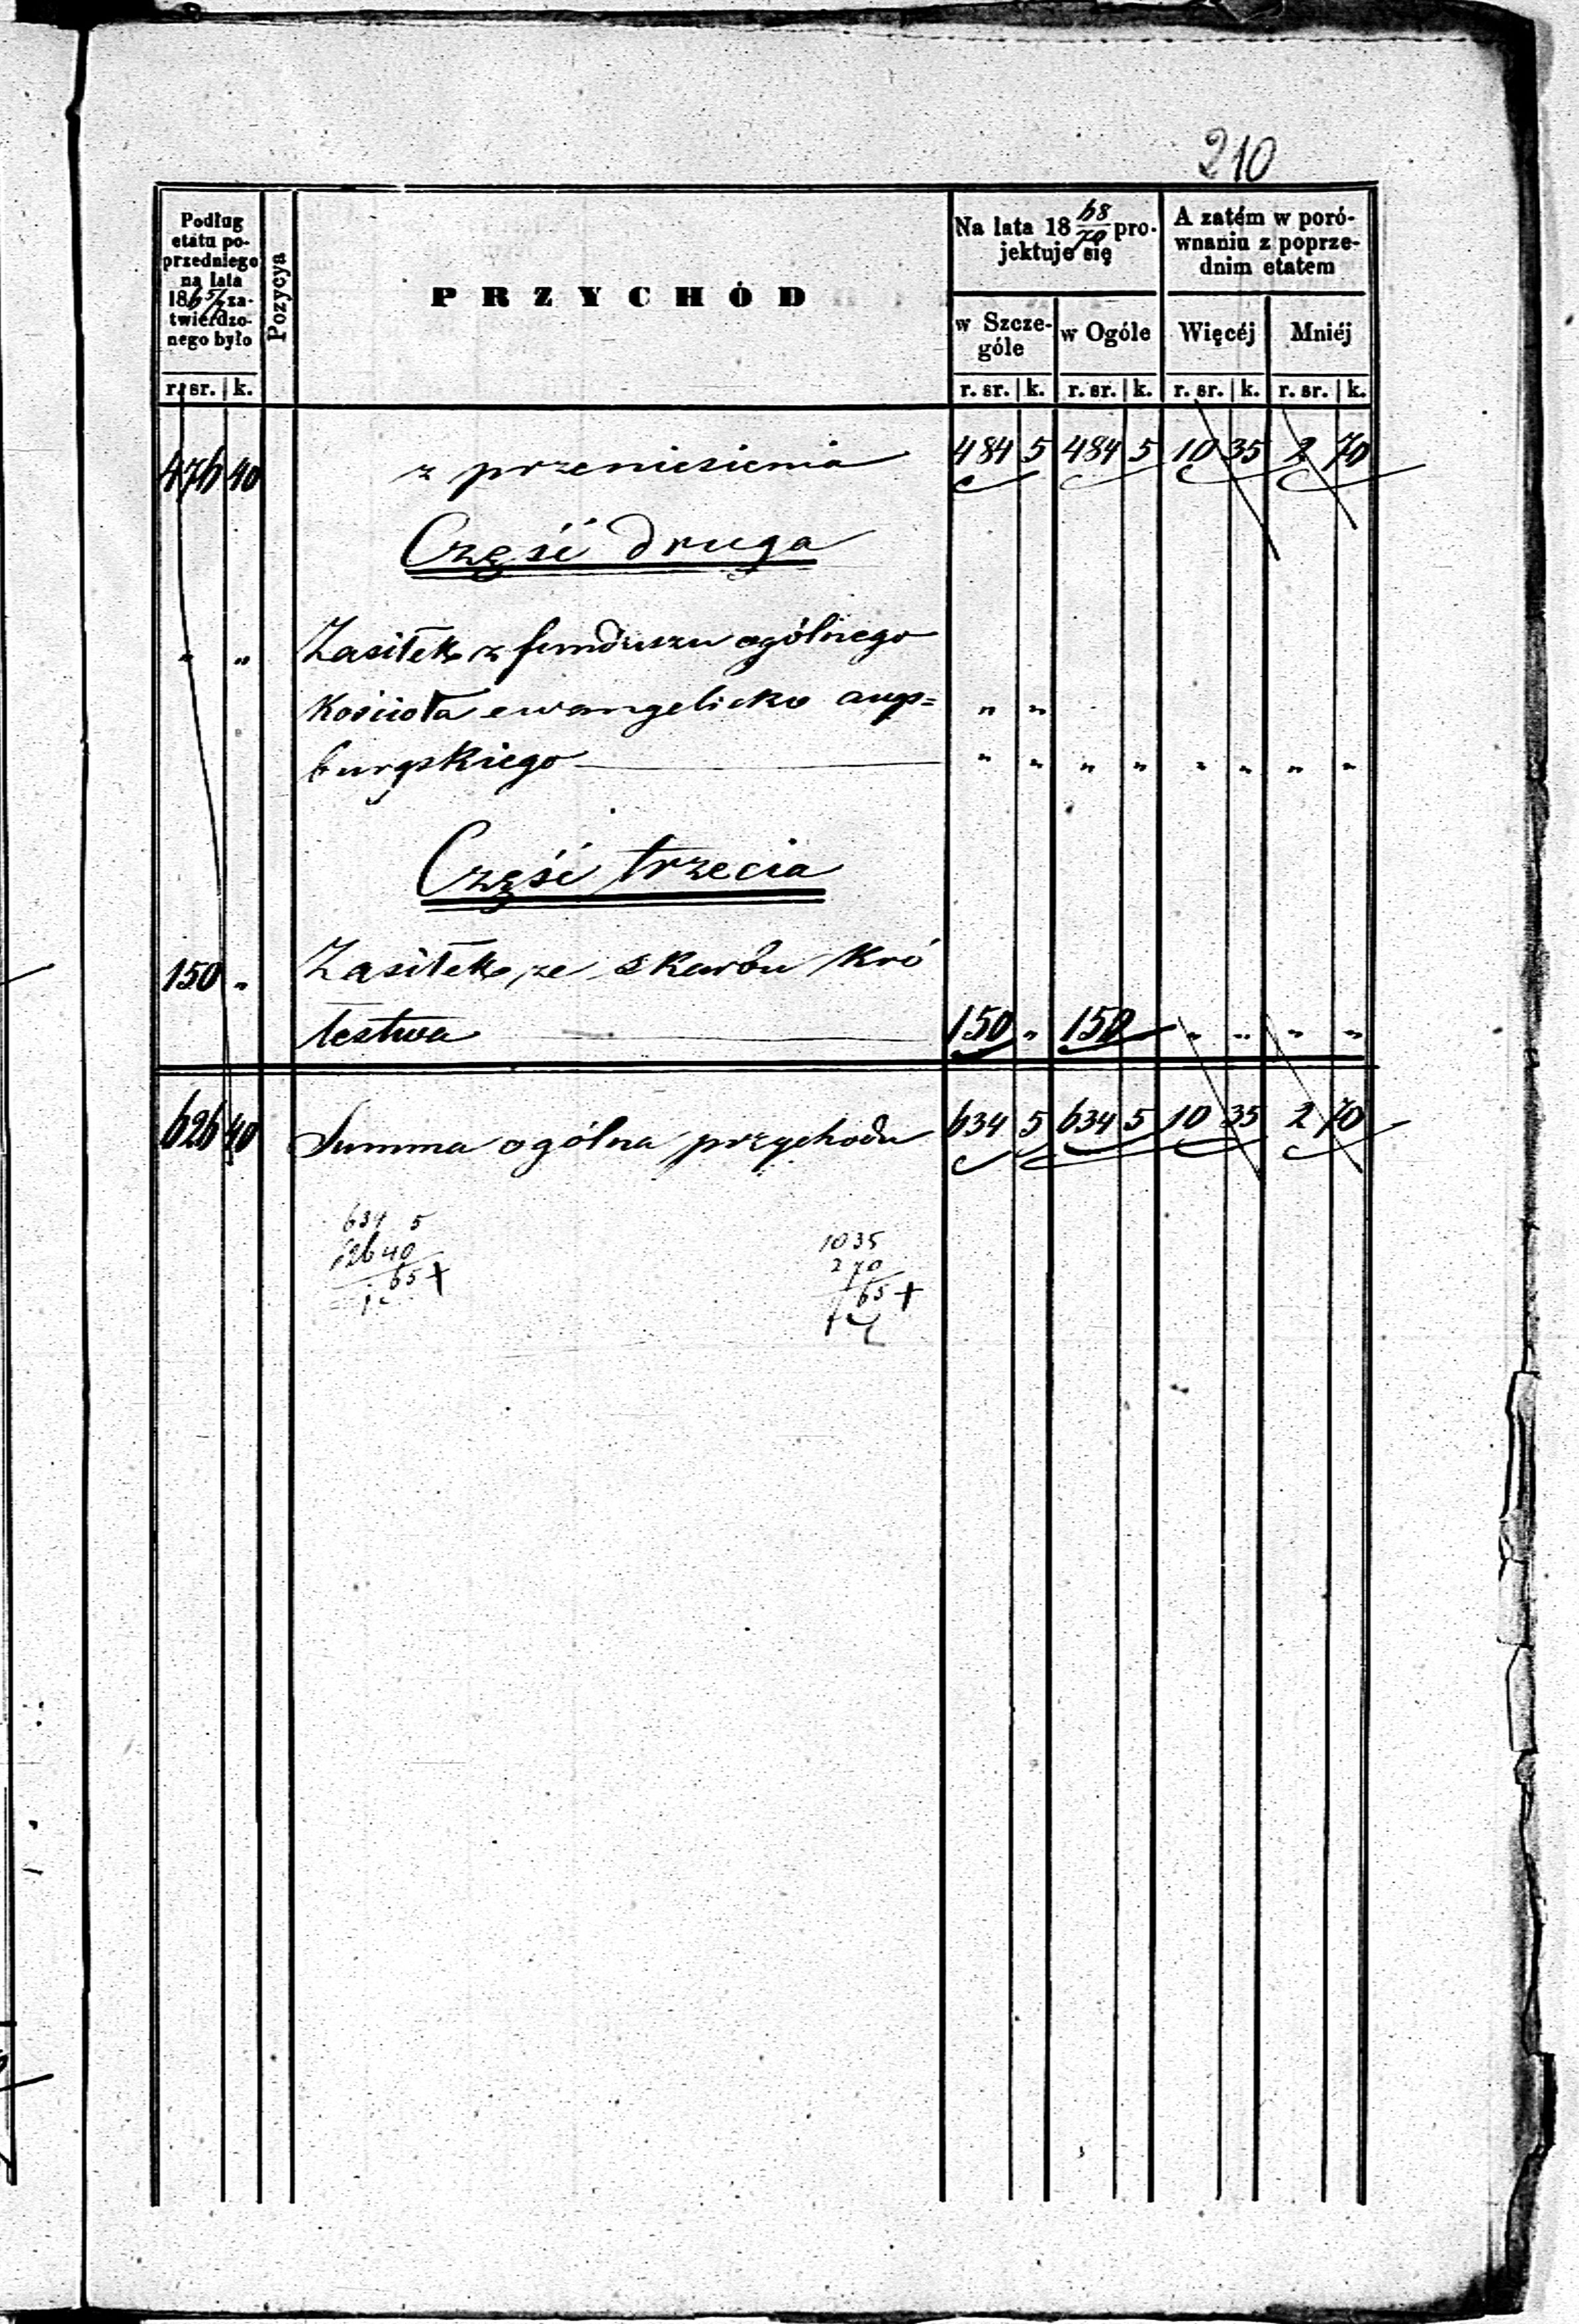 210
Podług
etatu po-
przedniego
na lata
1865/7 za-
twierdzo-
nego było
Pozycya
PRZYCHÓD
Na lata 18 68/70 pro-
jektuje się
A zatém w poró-
wnaniu z poprze-
dnim etatem
w Szcze-
góle
w Ogóle
Więcéj
Mniéj
r. sr. k. r. sr. k. r. sr. k. r. sr. k. r. sr. k.
476 40 z przeniesienia 484 5 484 5 10 35 2 70
Część druga
" " Zasiłek z funduszu ogólnego
Kościoła ewangelicko augs= " "
burgskiego " " " " " " " "
Część trzecia
150 " Zasiłek ze skarbu Kró
lestwa 150 " 150 " " " "
626 40 Summa ogólna przychodu 634 5 634 5 10 35 2 70
634 5
626 40
65 +
10 35
2 70
7 65 +